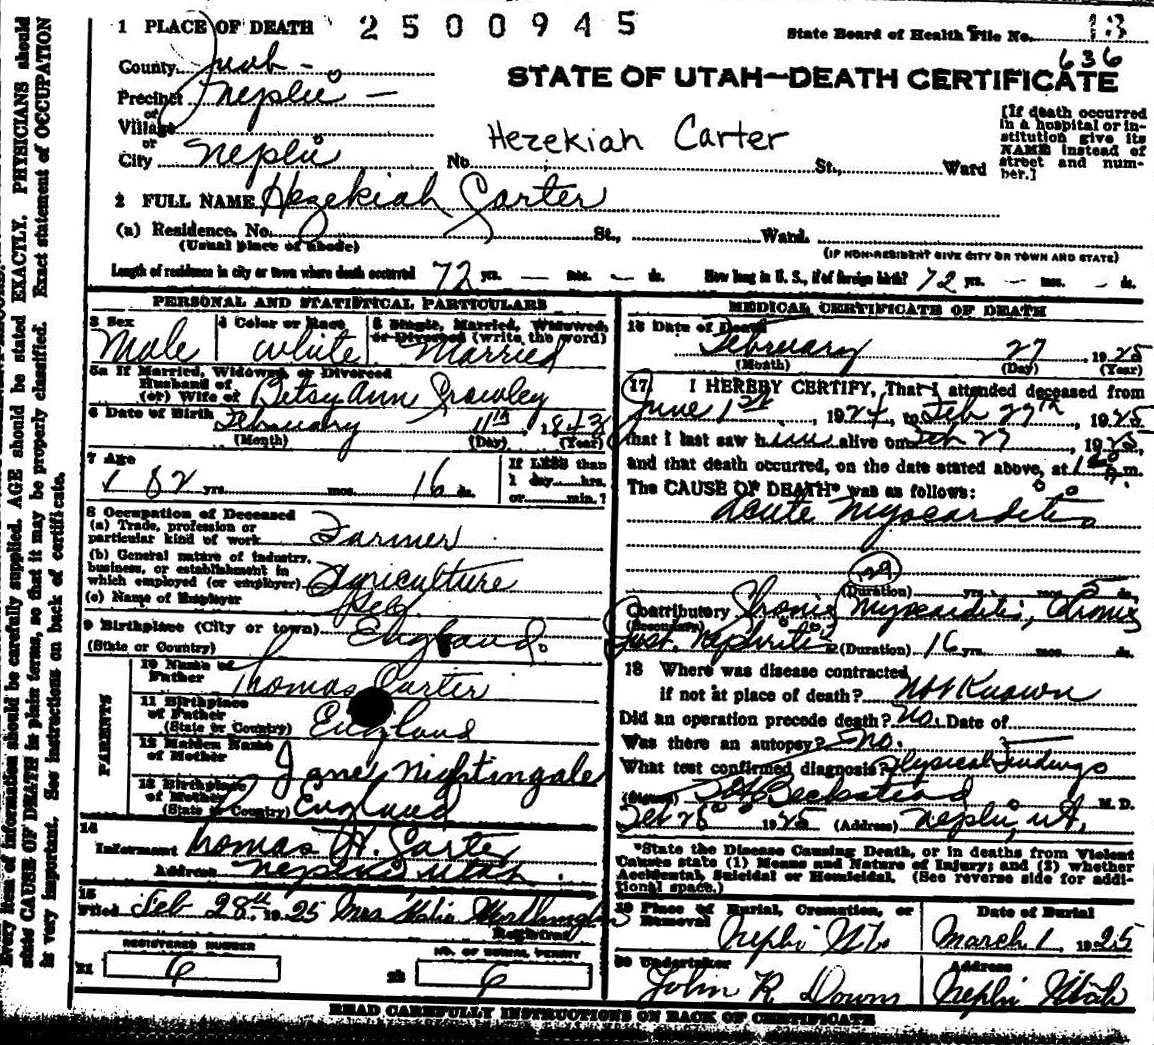 1 PLACE OF DEATH 2500945 State Board of Health File No. 13
636
County Juab —
STATE OF UTAH—DEATH CERTIFICATE
Precinct Nephi —
or
Village
or
City Nephi No. St., Ward
Hezekiah Carter
[If death occurred
in a hospital or in-
stitution give its
NAME instead of
street and num-
ber.]
2 FULL NAME Hezekiah Carter
(a) Residence. No. St., Ward.
(Usual place of abode) (IF NON-RESIDENT GIVE CITY OR TOWN AND STATE)
Length of residence in city or town where death occurred 72 yrs. — mos. — ds. How long in U. S., if of foreign birth? 72 yrs. — mos. — ds.
PERSONAL AND STATISTICAL PARTICULARS
3 Sex 4 Color or Race 5 Single, Married, Widowed,
or Divorced (write the word)
Male White Married
5a If Married, Widowed, or Divorced
Husband of
(or) Wife of Betsy Ann Crowley
6 Date of Birth February 11th, 1843
(Month) (Day) (Year)
7 Age If LESS than
1 day hrs.
82 yrs. mos. 16 ds. or min.?
8 Occupation of Deceased
(a) Trade, profession or
particular kind of work Farmer
(b) General nature of industry,
business, or establishment in
which employed (or employer) Agriculture
(c) Name of Employer Self
9 Birthplace (City or town) England.
(State or Country)
PARENTS
10 Name of
Father Thomas Carter
11 Birthplace
of Father
(State or Country) England
12 Maiden Name
of Mother Jane Nightingale
13 Birthplace
of Mother
(State or Country) England
14
Informant Thomas H. Carter
Address Nephi Utah.
15
Filed Feb 28th 1925 Mrs
Registrar
REGISTERED NUMBER NO. OF BURIAL PERMIT
21 6 22 6
MEDICAL CERTIFICATE OF DEATH
16 Date of Death
February 27, 1925
(Month) (Day) (Year)
17. I HEREBY CERTIFY, That I attended deceased from
June 1st, 1924, to Feb 27th, 1925
that I last saw him alive on Feb 27, 1925,
and that death occurred, on the date stated above, at m.
The CAUSE OF DEATH* was as follows:
Acute Myocarditis
129
(Duration) yrs. mos. 5 ds.
Contributory Chronic Myocarditis, Chronic
(Secondary) Inst. Nephritis (Duration) 16 yrs. mos. ds.
18 Where was disease contracted
if not at place of death? Not Known
Did an operation precede death? No. Date of
Was there an autopsy? No.
What test confirmed diagnosis? Physical Findings
(Signed) Beckstead M. D.
Feb 28 1925 (Address) Nephi, Ut,
*State the Disease Causing Death, or in deaths from Violent
Causes state (1) Means and Nature of Injury; and (2) whether
Accidental, Suicidal or Homicidal. (See reverse side for addi-
tional space.)
19 Place of Burial, Cremation, or
Removal Date of Burial
Nephi Ut. March 1, 1925
20 Undertaker Address
John R Downs Nephi Utah
READ CAREFULLY INSTRUCTIONS ON BACK OF CERTIFICATE
Every item of information should be carefully supplied. AGE should be stated EXACTLY. PHYSICIANS should
state CAUSE OF DEATH in plain terms, so that it may be properly classified. Exact statement of OCCUPATION
is very important. See instructions on back of certificate.